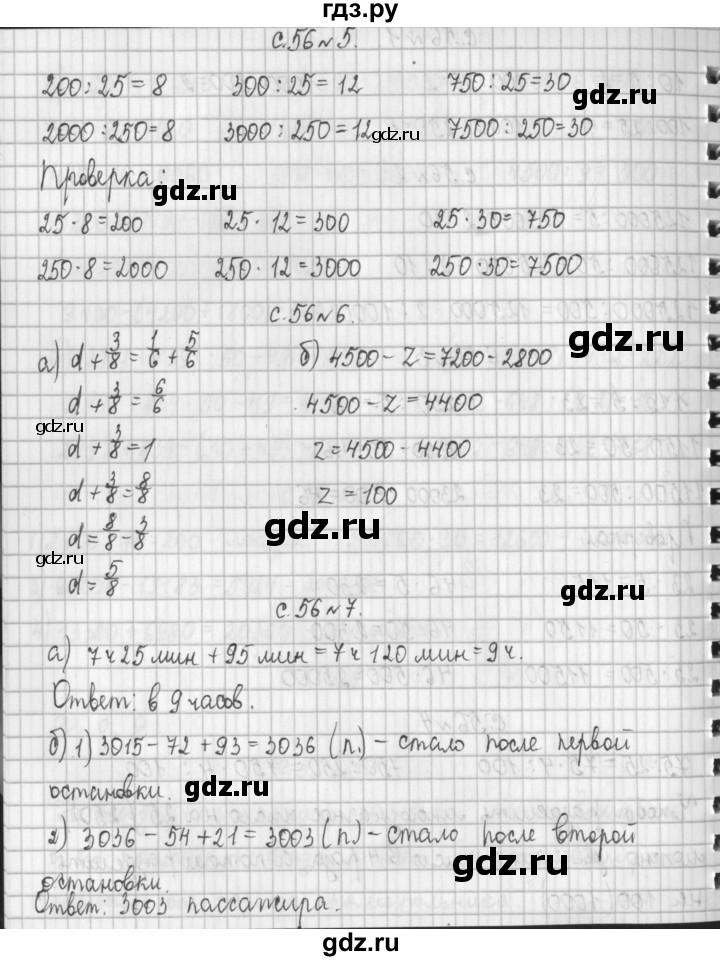 гдз.ру
с.56 №5.
200 : 25 = 8 300 : 25 = 12 750 : 25 = 30
gdz.ru
2000 : 250 = 8 3000 : 250 = 12 gdz.ru 7500 : 250 = 30
gdz.ru
Проверка:
gdz.ru
25 · 8 = 200 25 · 12 = 300 25 · 30 = 750
250 · 8 = 2000 250 · 12 = 3000 250 · 30 = 7500
с.56 №6.
а) d + 3/8 = 1/6 + 5/6 б) 4500 - z = 7200 - 2800
gdz.ru
d + 3/8 = 6/6 4500 - z = 4400
gdz.ru
d + 3/8 = 1 z = 4500 - 4400
d + 3/8 = 8/8 z = 100
gdz.ru
d = 8/8 - 3/8
gdz.ru
d = 5/8
gdz.ru
с.56 №7.
а) 7 ч 25 мин + 95 мин = 7 ч 120 мин = 9 ч.
Ответ: в 9 часов.
gdz.ru
б) 1) 3015 - 72 + 93 = 3036 (п.) - стало после первой
остановки.
gdz.ru
2) 3036 - 54 + 21 = 3003 (п) - стало после второй
gdz.ru
остановки.
Ответ: 3003 пассажира.
gdz.ru